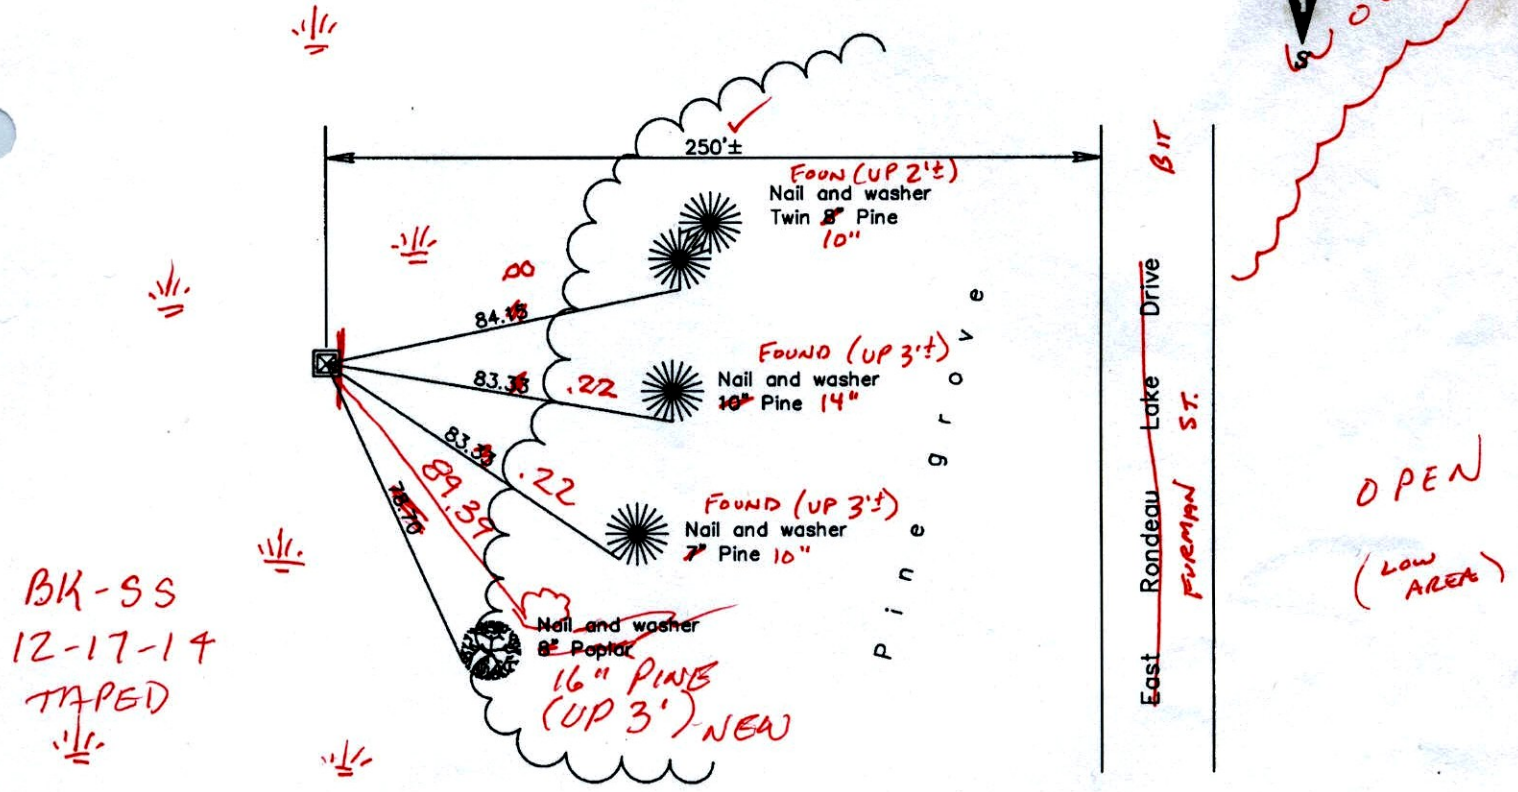 S
250'±
BIT
FOUN (UP 2'±)
Nail and washer
Twin 8" Pine
10"
00
84.15
FOUND (UP 3'±)
83.33 .22
Nail and washer
10" Pine 14"
83.33
.22
89.39
78.70
FOUND (UP 3'±)
Nail and washer
7" Pine 10"
Nail and washer
8" Poplar
16" PINE
(UP 3') NEW
Pine grove
East Rondeau Lake Drive
FURMAN ST.
OPEN
(LOW
AREA)
BK-SS
12-17-14
TAPED